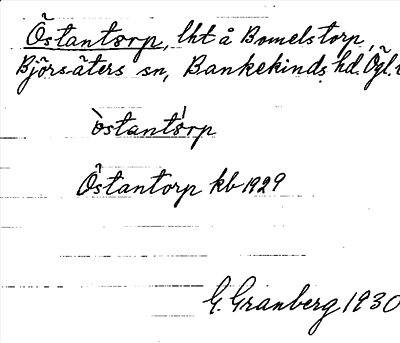 Östantorp, lht å Bomelstorp,
Björsäters sn, Bankekinds hd. Ögl.
östantòrp
Östantorp kb 1929
G. Granberg 1930